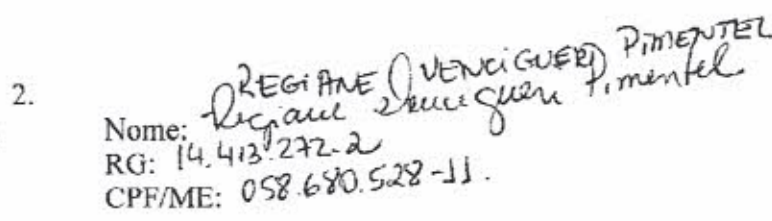 2.
REGIANE VENCIGUERI PIMENTEL
Nome: Regiane Vencigueri Pimentel
RG: 14.413.272-2
CPF/ME: 058.680.528-11.